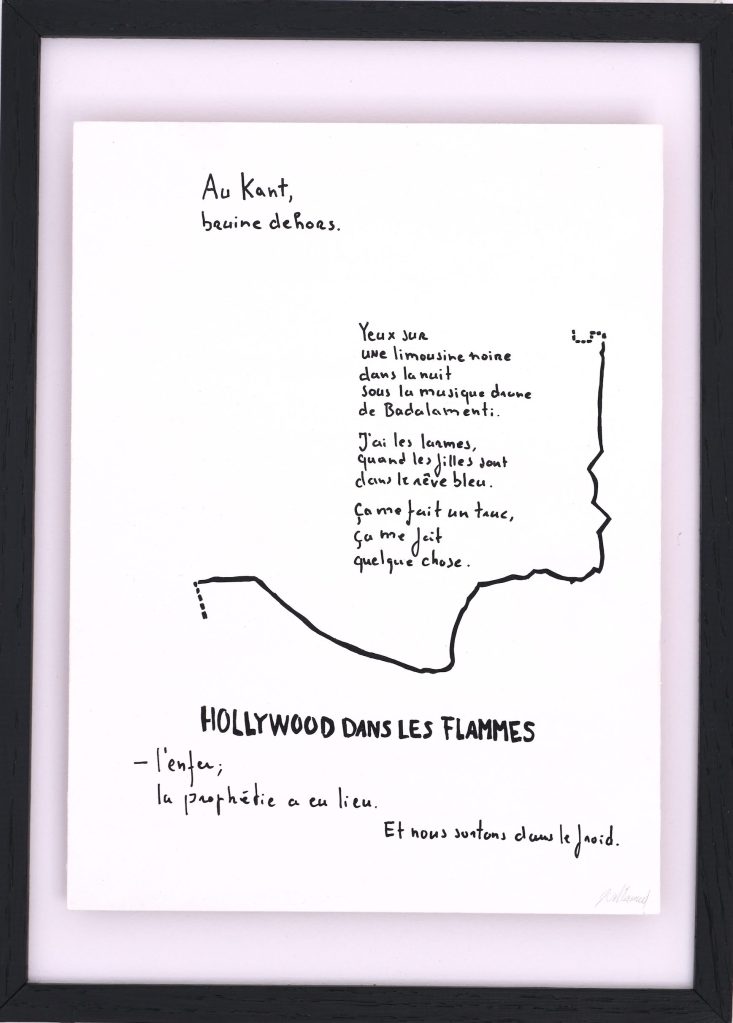 Au Kant,
bruine dehors.
Yeux sur
une limousine noire
dans la nuit
sous la musique drone
de Badalamenti.
J'ai les larmes,
quand les filles sont
dans le rêve bleu.
Ça me fait un truc,
ça me fait
quelque chose.
HOLLYWOOD DANS LES FLAMMES
– l'enfer;
la prophétie a eu lieu.
Et nous sortons dans le froid.